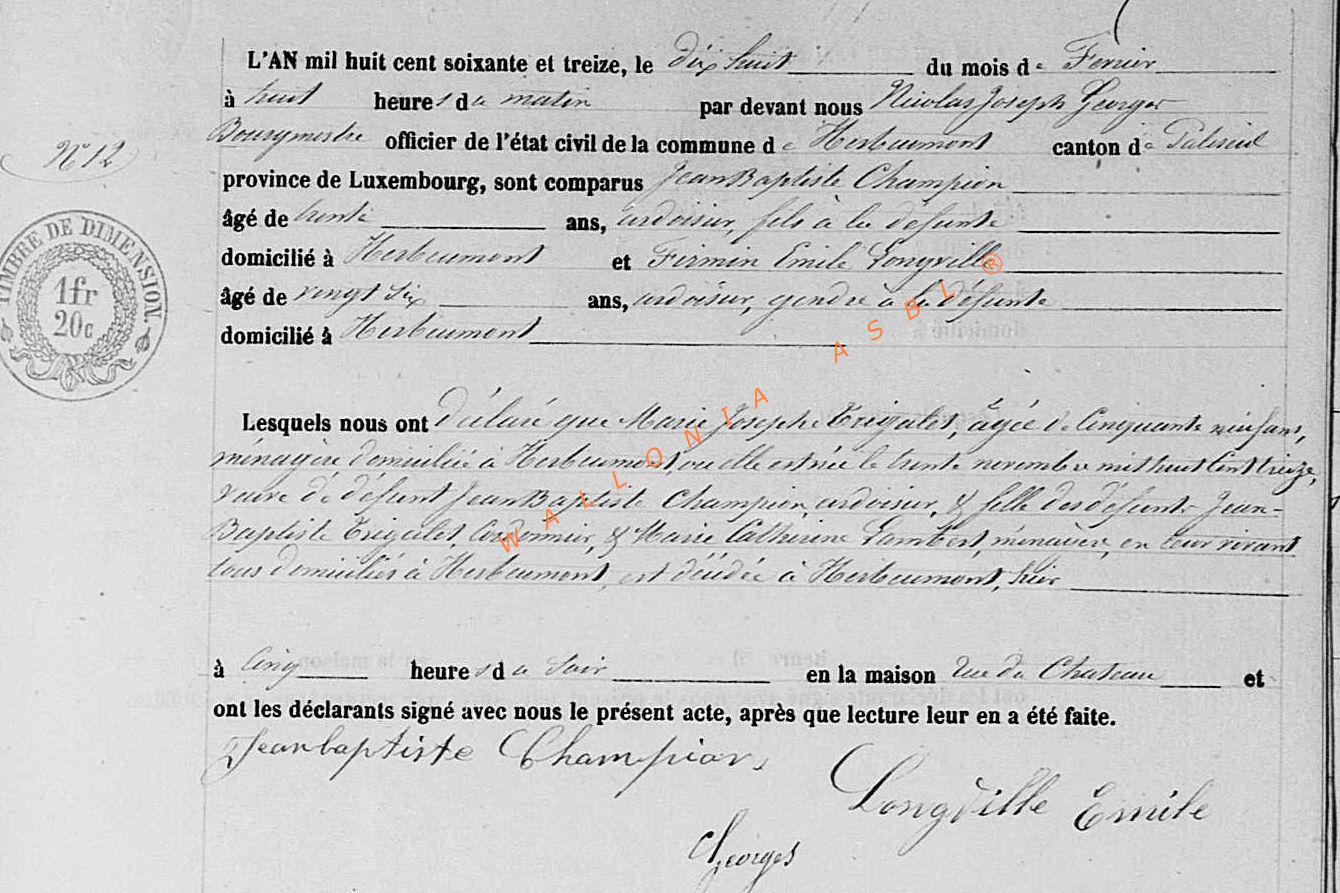 L'AN mil huit cent soixante et treize, le dix huit du mois de Fevrier
à huit heures du matin par devant nous Nicolas Joseph Georges
Bourgmestre officier de l'état civil de la commune de Herbeumont canton de Paliseul
N° 12
province de Luxembourg, sont comparus Jean Baptiste Champion
âgé de trente ans, ardoisier, fils à la défunte
domicilié à Herbeumont et Firmin Emile Longville
âgé de vingt six ans, ardoisier, gendre à la défunte
domicilié à Herbeumont
TIMBRE DE DIMENSION
1fr
20c
WALLONIA ASBL ®
Lesquels nous ont déclaré que Marie Josephe Trigalet, âgée de Cinquante neuf ans,
ménagère, domiciliée à Herbeumont, ou elle est née le trente novembre mil huit Cent treize,
veuve de défunt Jean Baptiste Champion, ardoisier, & fille des défunts Jean-
Baptiste Trigalet, Cordonnier, & Marie Catherine Lambert, ménagère, en leur vivant
tous domiciliés à Herbeumont, est décédée à Herbeumont, hier
à Cinq heures du Soir en la maison rue du Chateau et
ont les déclarants signé avec nous le présent acte, après que lecture leur en a été faite.
Jeanbaptiste Champion
Longville Emile
Georges